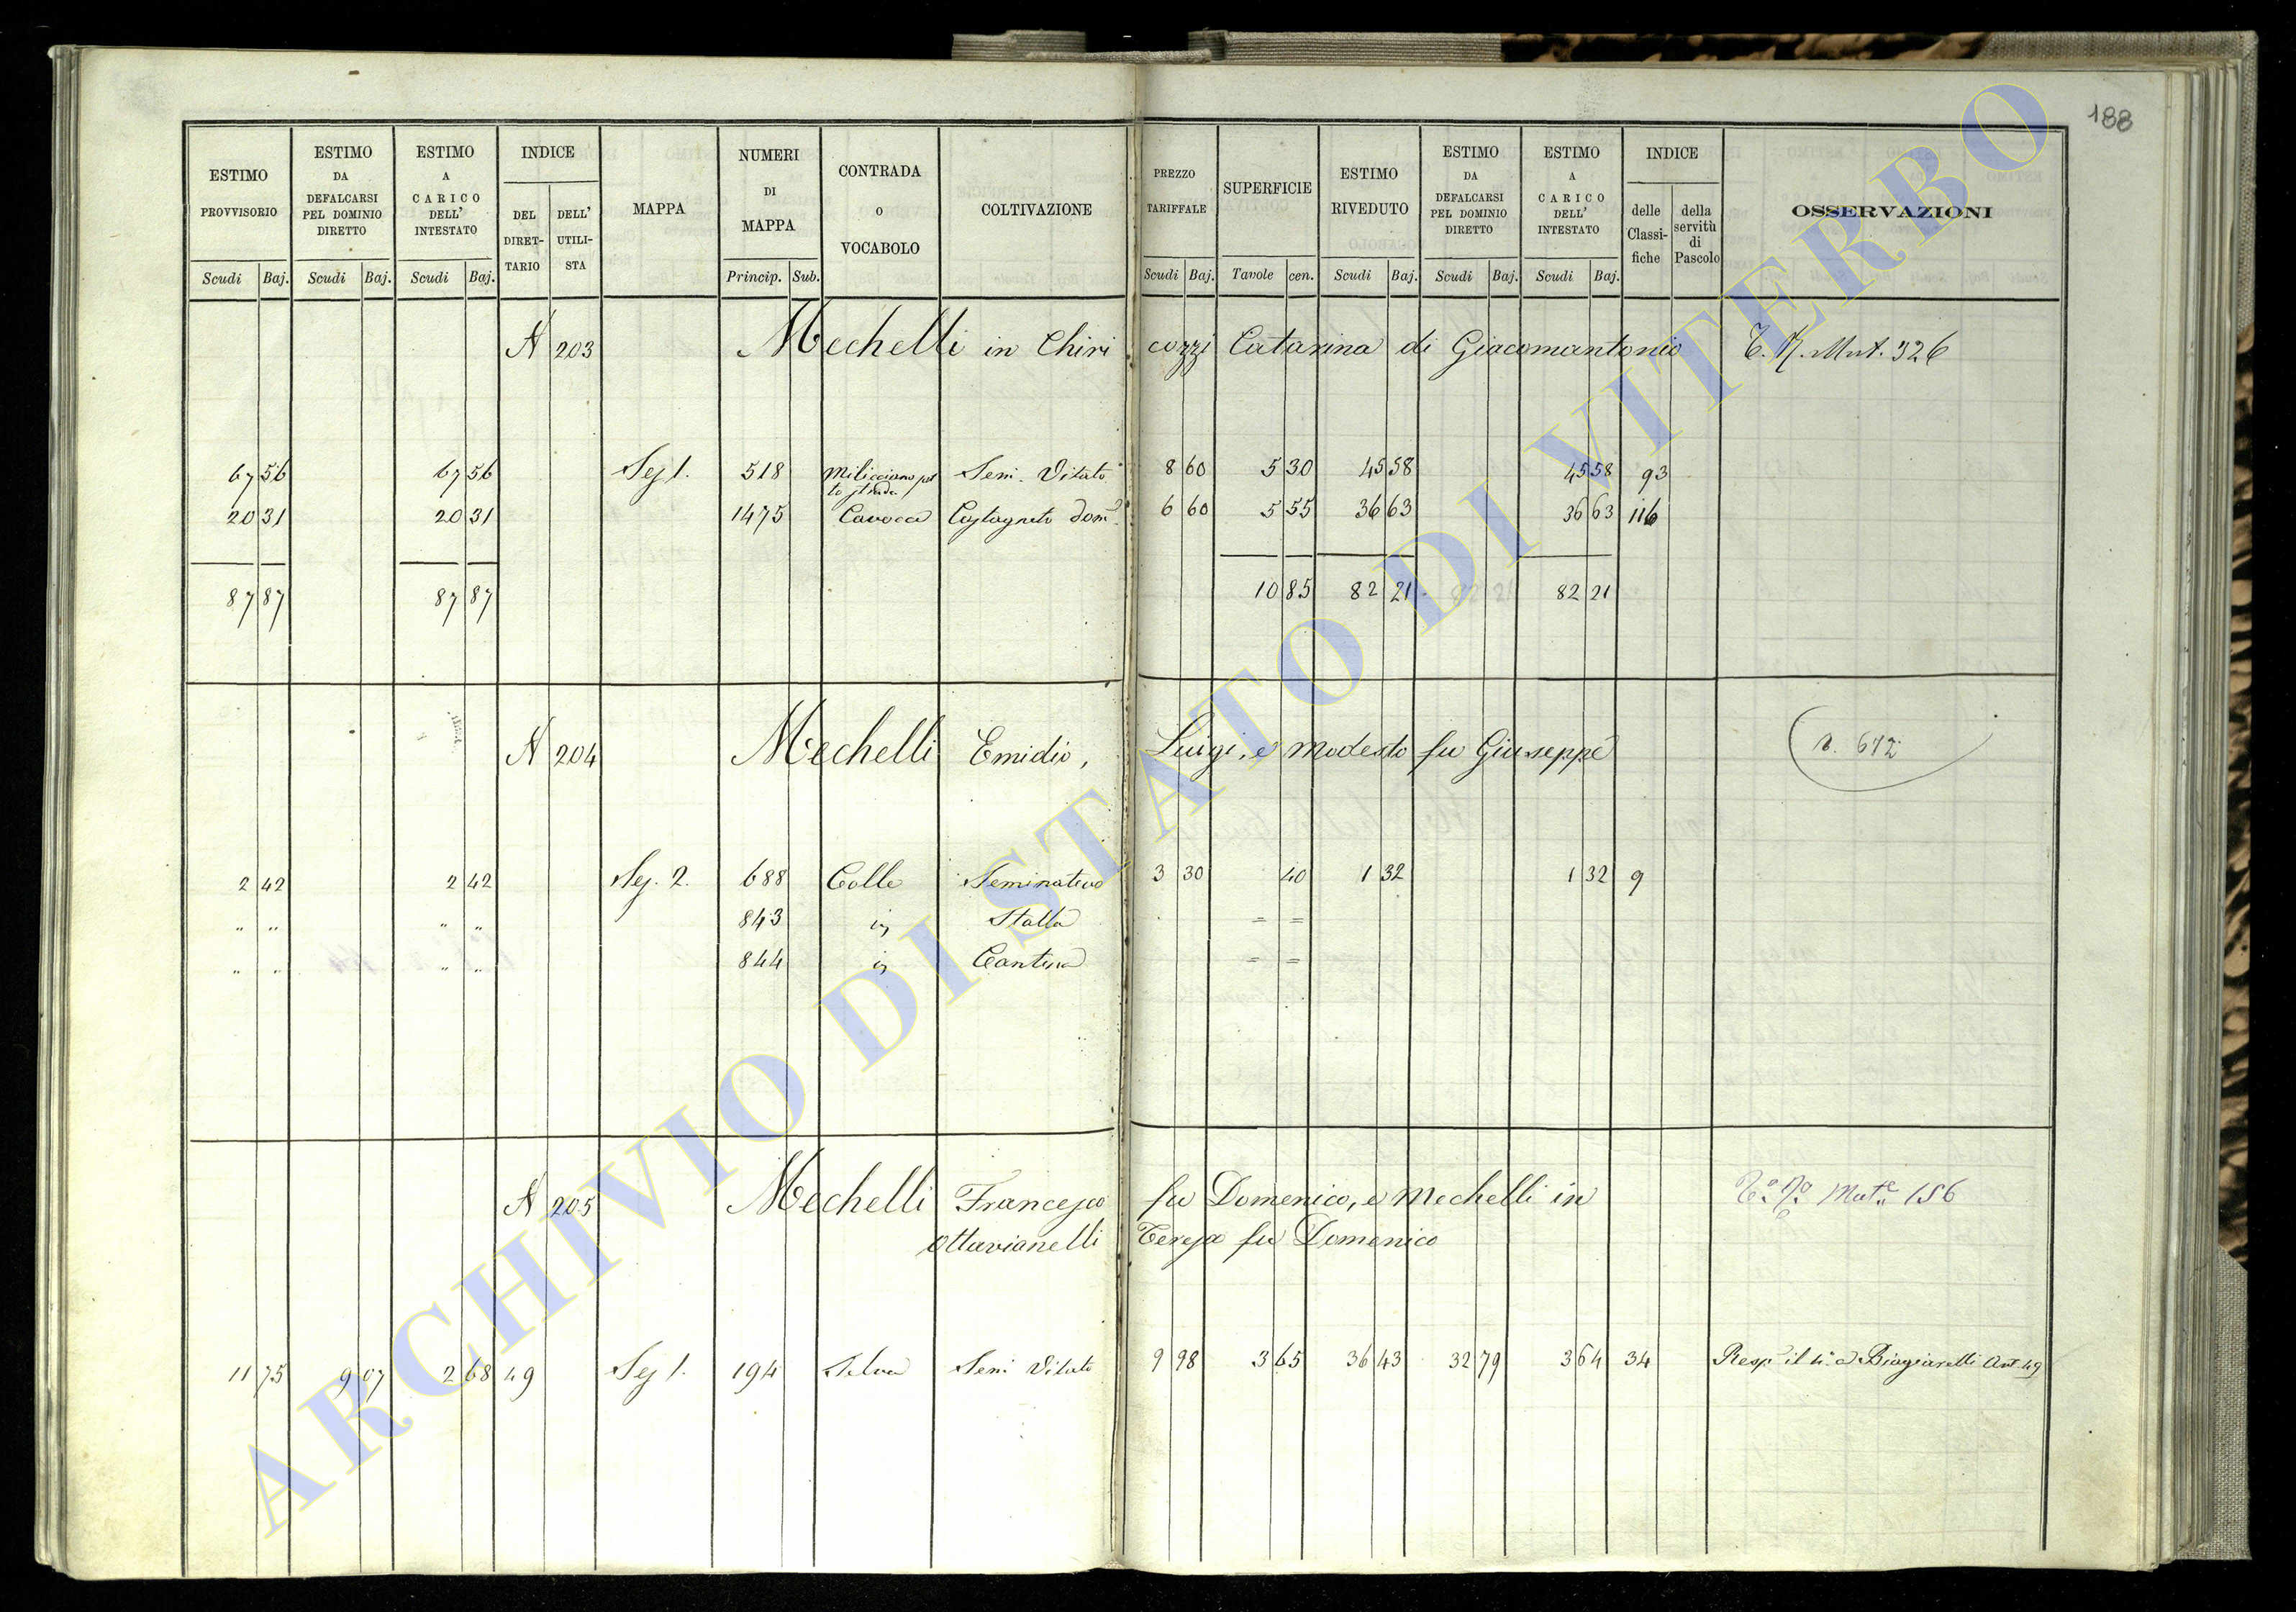 188
ESTIMO PROVVISORIO Scudi Baj.
ESTIMO DA DEFALCARSI PEL DOMINIO DIRETTO Scudi Baj.
ESTIMO A CARICO DELL' INTESTATO Scudi Baj.
INDICE DEL DIRET-TARIO DELL' UTILI-STA
MAPPA
NUMERI DI MAPPA Princip. Sub.
CONTRADA O VOCABOLO
COLTIVAZIONE
PREZZO TARIFFALE Scudi Baj.
SUPERFICIE Tavole cen.
ESTIMO RIVEDUTO Scudi Baj.
ESTIMO DA DEFALCARSI PEL DOMINIO DIRETTO Scudi Baj.
ESTIMO A CARICO DELL' INTESTATO Scudi Baj.
INDICE delle Classi-fiche della servitù di Pascolo
OSSERVAZIONI
N 203 Mechelli in Chiricozzi Catarina di Giacomantonio T. N. Mut. 326
67 56 67 56 Sez 1. 518 Sem. Vitato 8 60 5 30 45 58 45 58 93
20 31 20 31 1475 Cavocca Castagneto dom. 6 60 5 55 36 63 36 63 116
87 87 87 87 10 85 82 21 82 21
N 204 Mechelli Emidio, Luigi, e Modesto fu Giuseppe n. 672
2 42 2 42 Sez. 2. 688 Colle Seminativo 3 30 40 1 32 1 32 9
" " " " 843 Stalla = =
" " " " 844 Cantina = =
N 205 Mechelli Francesco fu Domenico, e Mechelli in Mut. 156
Ottavianelli Teresa fu Domenico
11 75 9 07 2 68 49 Sez 1. 194 Selva Sem. Vitato 9 98 3 65 36 43 32 79 3 64 34 Resp. il 4.º a Biagiarelli Art. 49
ARCHIVIO DI STATO DI VITERBO